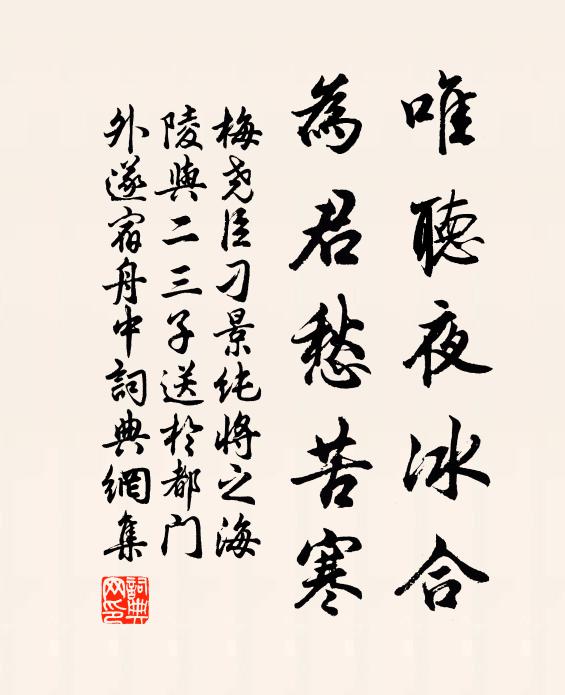 唯聽夜冰合
為君愁苦寒
梅堯臣刁景純將之海
陵與二三子送於都門
外遂宿舟中詞典網集
詞典網印